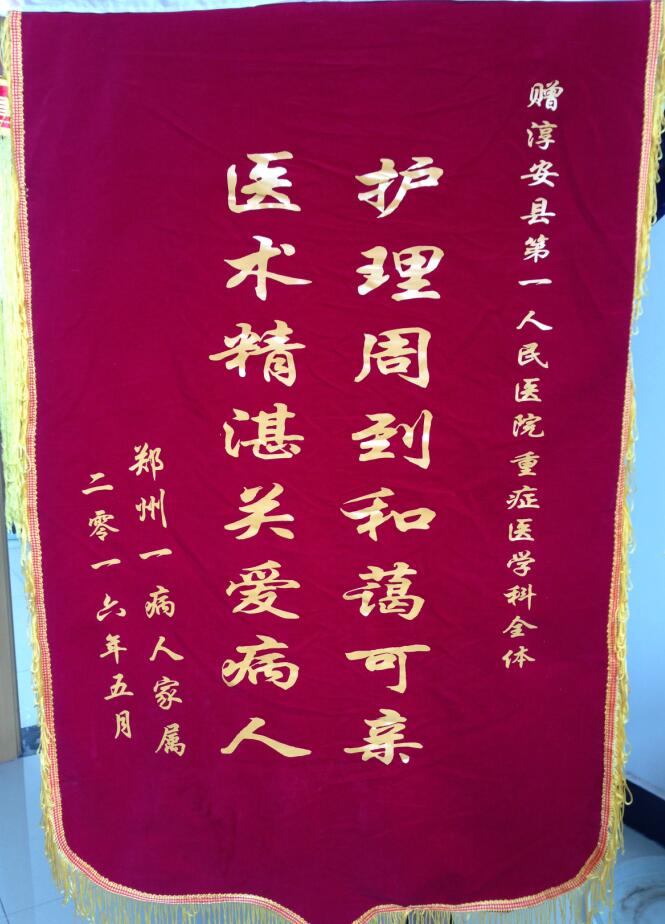 赠淳安县第一人民医院重症医学科全体
护理周到和蔼可亲
医术精湛关爱病人
郑州一病人家属
二零一六年五月